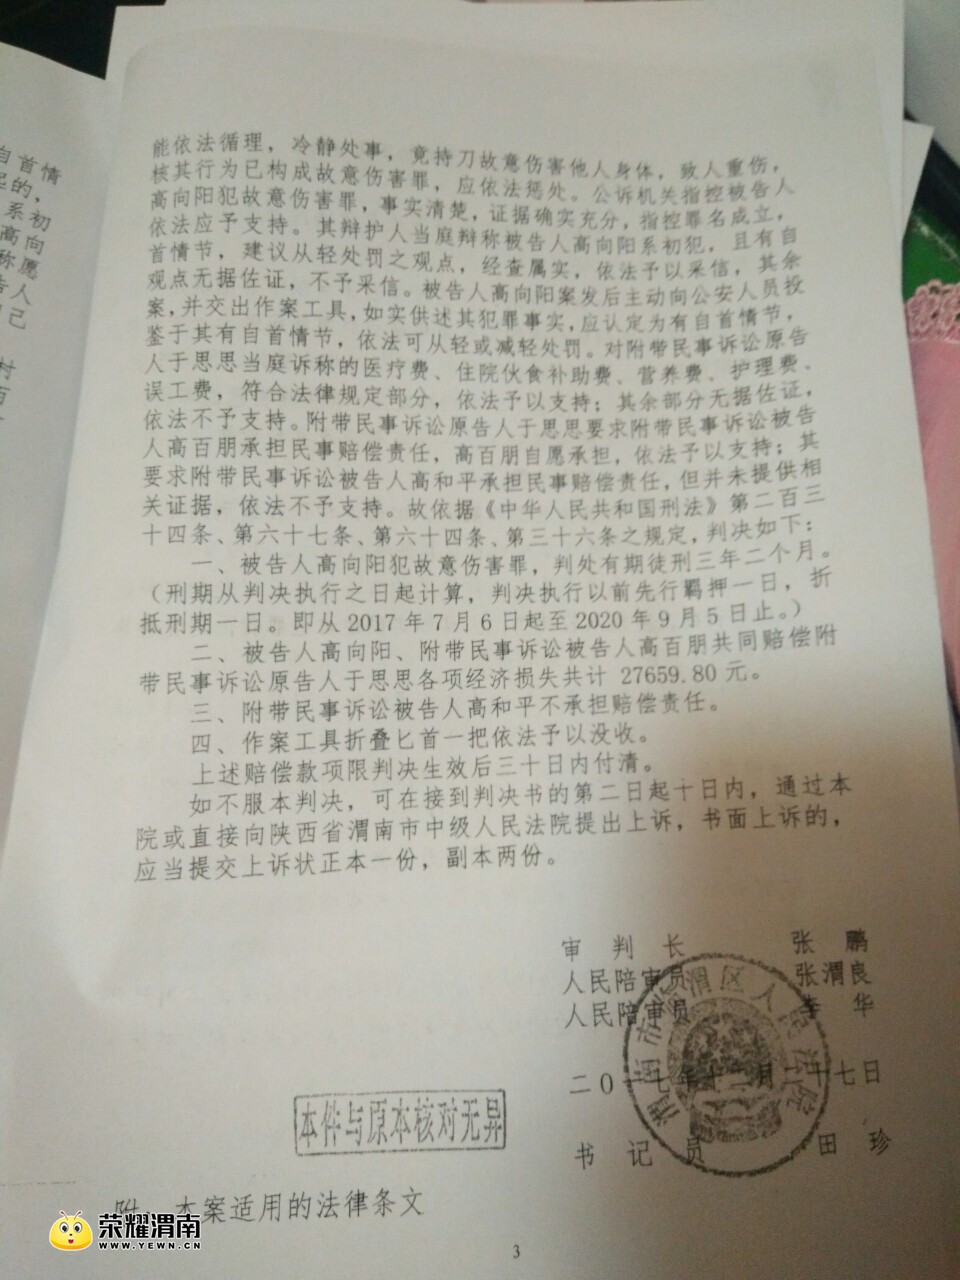 自首情
起的,
系初
高向
称愿
告人
己
村
百
能依法循理，冷静处事，竟持刀故意伤害他人身体，致人重伤，
核其行为已构成故意伤害罪，应依法惩处。公诉机关指控被告人
高向阳犯故意伤害罪，事实清楚，证据确实充分，指控罪名成立，
依法应予支持。其辩护人当庭辩称被告人高向阳系初犯，且有自
首情节，建议从轻处罚之观点，经查属实，依法予以采信，其余
观点无据佐证，不予采信。被告人高向阳案发后主动向公安人员投
案，并交出作案工具，如实供述其犯罪事实，应认定为有自首情节，
鉴于其有自首情节，依法可从轻或减轻处罚。对附带民事诉讼原告
人于思思当庭诉称的医疗费、住院伙食补助费、营养费、护理费、
误工费，符合法律规定部分，依法予以支持；其余部分无据佐证，
依法不予支持。附带民事诉讼原告人于思思要求附带民事诉讼被告
人高百朋承担民事赔偿责任，高百朋自愿承担，依法予以支持；其
要求附带民事诉讼被告人高和平承担民事赔偿责任，但并未提供相
关证据，依法不予支持。故依据《中华人民共和国刑法》第二百三
十四条、第六十七条、第六十四条、第三十六条之规定，判决如下：
一、被告人高向阳犯故意伤害罪，判处有期徒刑三年二个月。
（刑期从判决执行之日起计算，判决执行以前先行羁押一日，折
抵刑期一日。即从2017年7月6日起至2020年9月5日止。）
二、被告人高向阳、附带民事诉讼被告人高百朋共同赔偿附
带民事诉讼原告人于思思各项经济损失共计 27659.80元。
三、附带民事诉讼被告人高和平不承担赔偿责任。
四、作案工具折叠匕首一把依法予以没收。
上述赔偿款项限判决生效后三十日内付清。
如不服本判决，可在接到判决书的第二日起十日内，通过本
院或直接向陕西省渭南市中级人民法院提出上诉，书面上诉的，
应当提交上诉状正本一份，副本两份。
审 判 长 张 鹏
人民陪审员 张渭良
人民陪审员 李 华
渭南市临渭区人民法院
二〇一七年十二月 十七日
本件与原本核对无异
书 记 员 田 珍
附：本案适用的法律条文
荣耀渭南
WWW.YEWN.CN
3